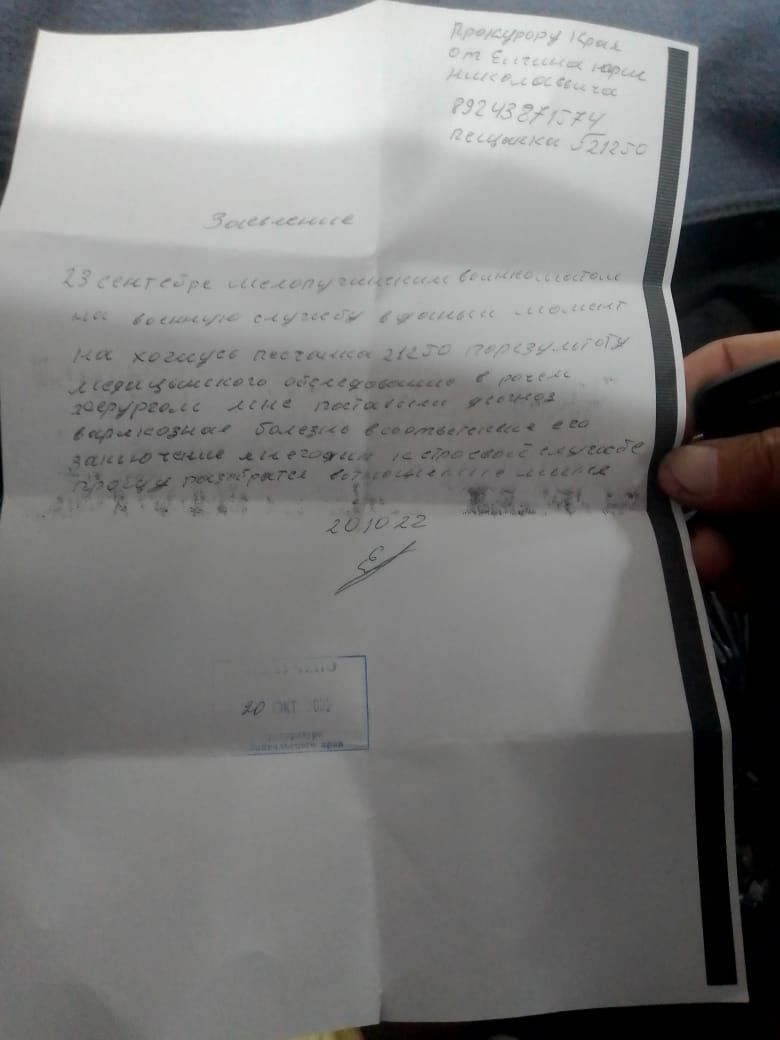 Прокурору Края
от Елчина Юрии
Николаевича
89243871574
песчанка 21250
Заевление
23 сентебре мелопучинским воинкоматом
на военную службу вданый момент
на хожусь песчанка 21250 порезультоту
медицынского обследование врочем
херургом мне поставили деогноз
варикозная болезнь всоответствие его
заключение я негоден к строевой службе
прошу разобратся вотношение миня
201022
20 ОКТ 2022